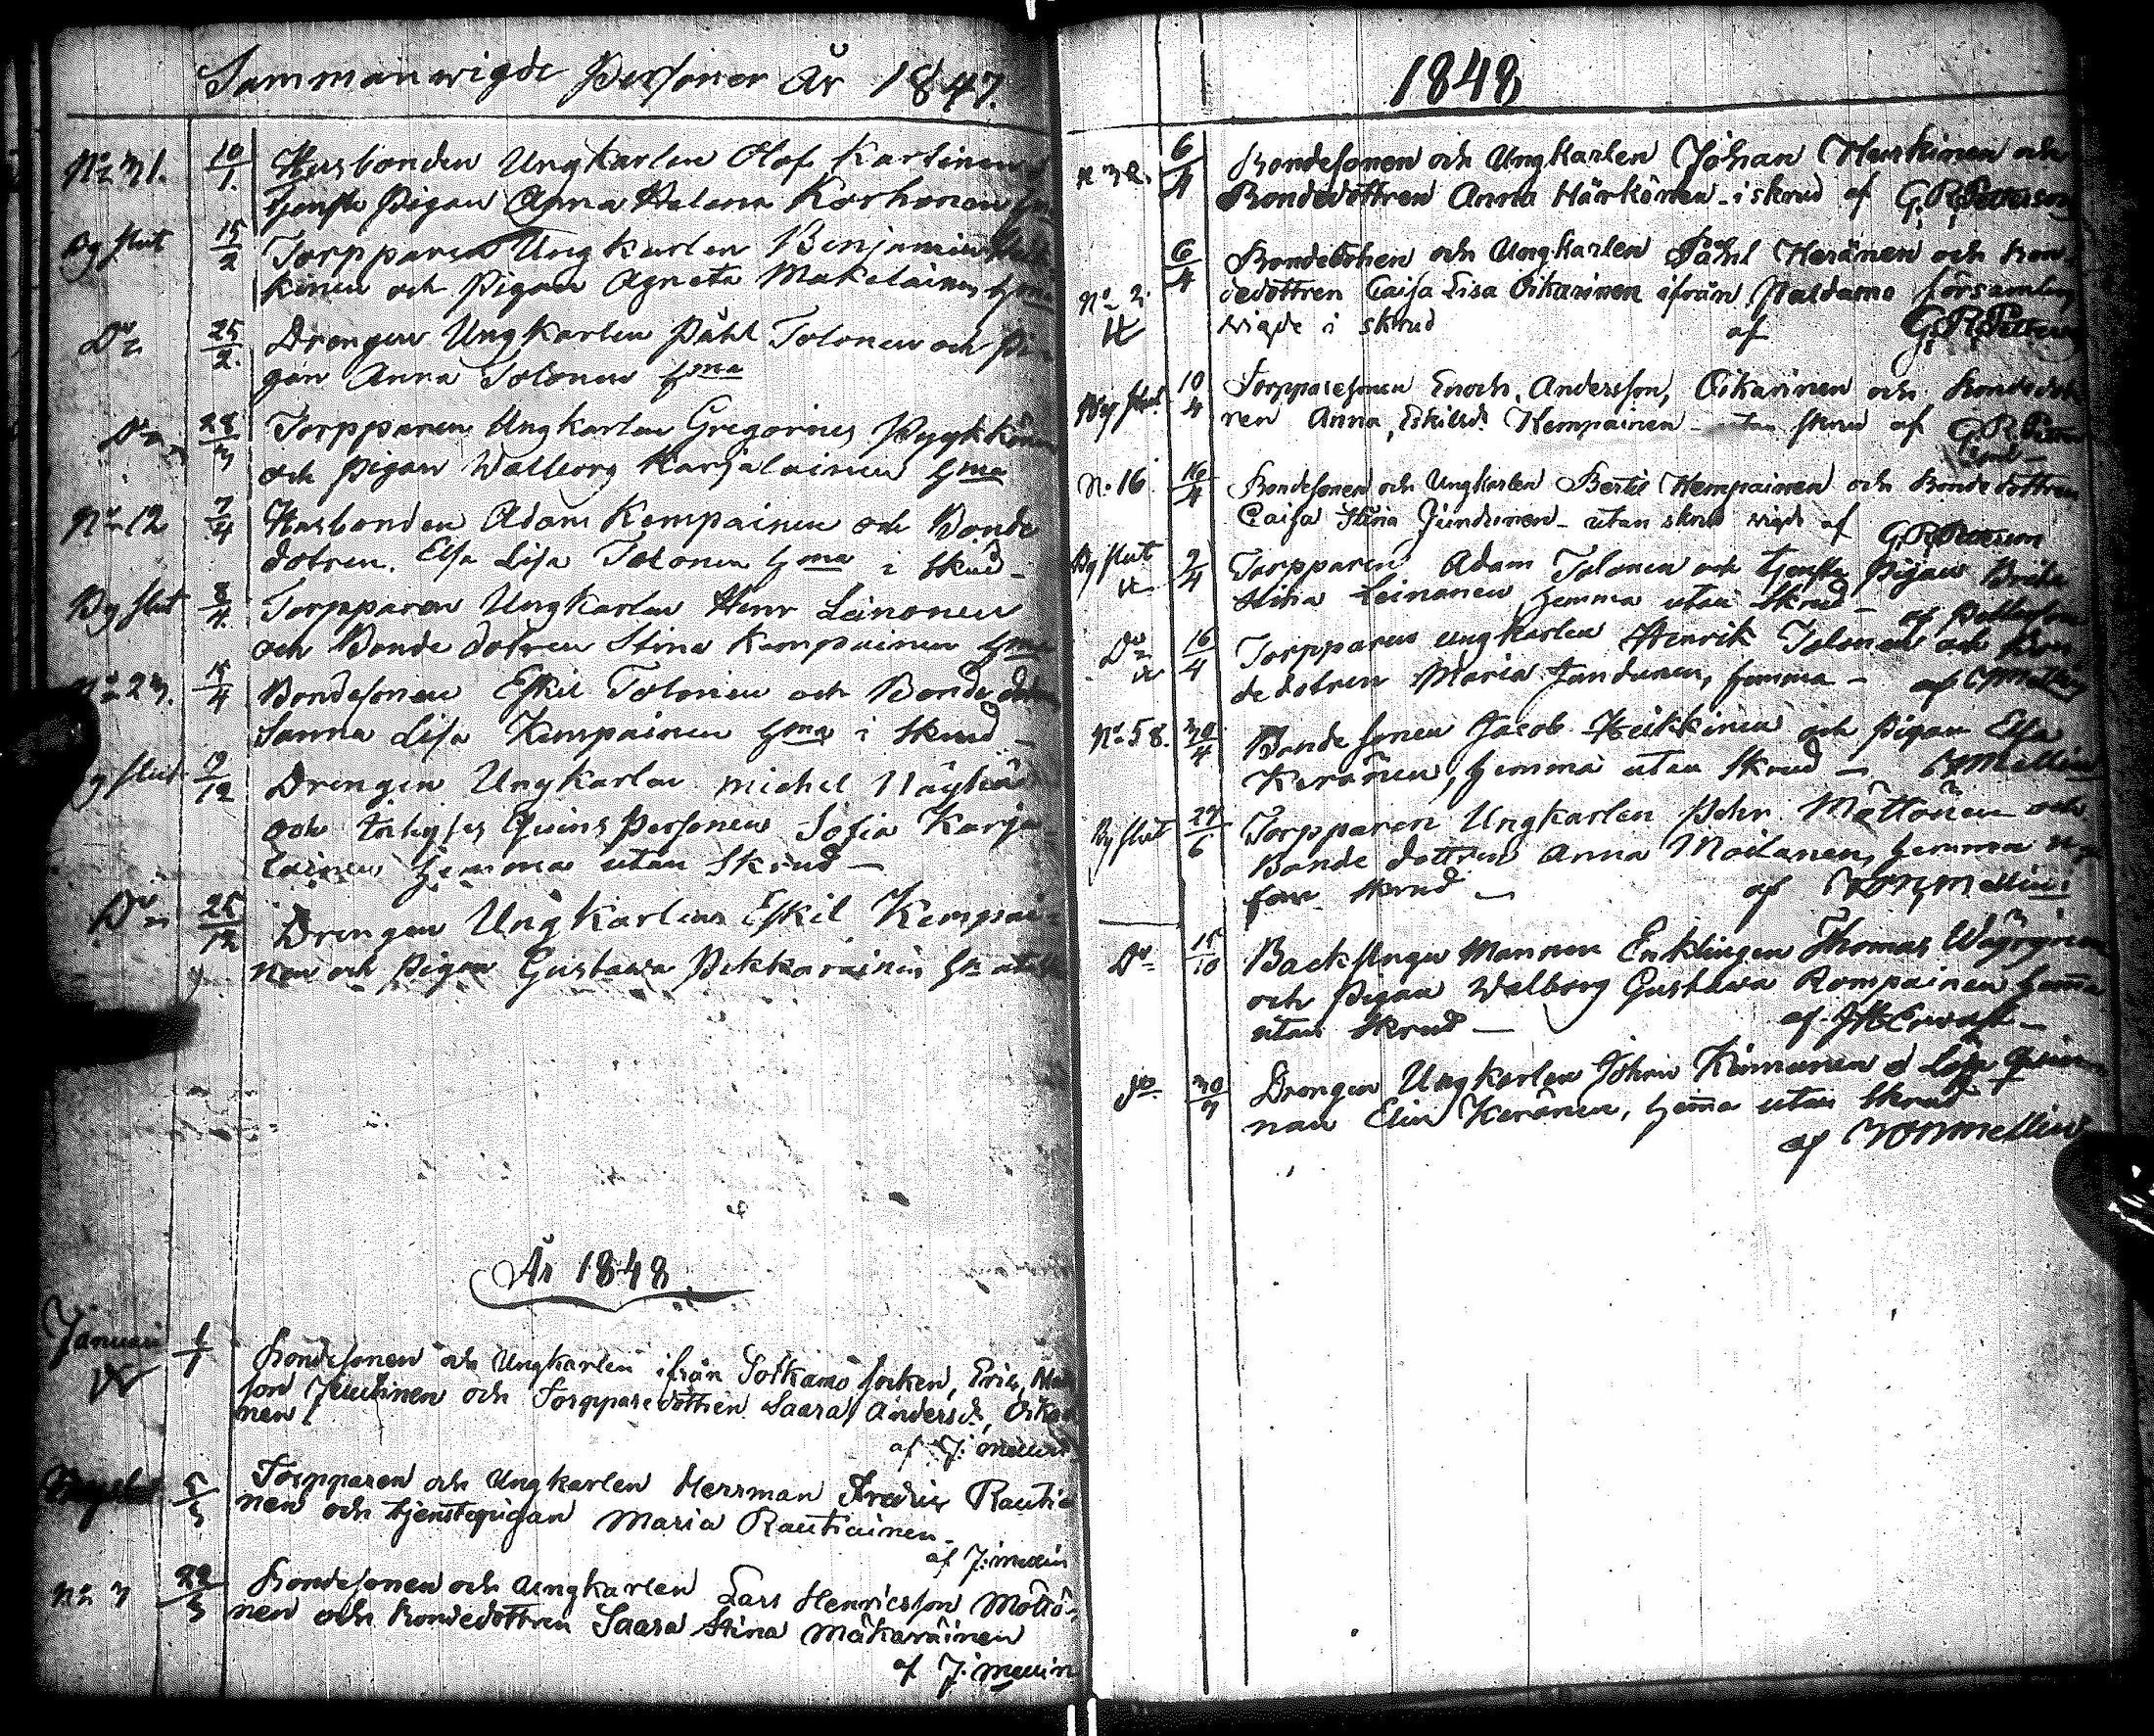 Sammanwigde Personer År 1847.
No 31. 10/1. Husbonden Ungkarlen Olof Karlinen
tjenste Pigan Anna Helena Korhonen
Bys slut 15/2 Torpparen Ungkarlen Benjamin
kinen och Pigan Agneta Makelainen
Do 25/2. Drengen Ungkarlen Påhl Tolonen och Pi-
gan Anna Tolonen hma
Do 28/3 Torpparen Ungkarlen Gregorius Pyykkönen
och Pigan Walborg Karjalainen hma
No 12 7/4 Husbonden Adam Kempainen och Bonde
dotren Elsa Lisa Tolonen hma i Skrud
By slut 8/4 Torpparen Ungkarlen Henr Leinonen
och Bonde dotren Stina Kempainen hma
No 23. 15/4 Bondesonen Eskil Tolonen och Bonde dotren
Sanna Lisa Kempainen hma i Skrud _
y slut /12 Drengen Ungkarlen Michel
och Qvins Personen Sofia Karja-
lainen hemma utan Skrud —
Do 25/12 Drengen Ungkarlen Eskil Kempai-
nen och Pigan Gustawa Pikkarainen
År 1848
Januari 1/1 Bondesonen och Ungkarlen ifrån Sotkamo socken, Eric,
son och Torpparedottren Saara Andersd., Oika
nen
af J: Mellin
5/3 Torpparen och Ungkarlen Herrman Fredric Rautia
nen och tjenstepigan Maria Rautiainen _
af J: Mellin
No 3 22/3 Bondesonen och Ungkarlen Lars Henricsson Möttö-
nen och Bondedottren Saara Stina Mäkäräinen
af J: Mellin
1848
6/4 Bondesonen och Ungkarlen Johan Heikkinen och
Bondedottren Anna Härkönen - i skrud af G. R. Petterson
No 2. 6/4 Bondesonen och Ungkarlen Påhl Keränen och Bon-
dedottren Caisa Lisa Oikarinen ifrån Paldamo församling
wigde i skrud af G. R. Petterson
By slut. 10/4 Torpparesonen Enoch, Andersson, Oikarinen och Bondedot
ren Anna, Eskilsd. Kempainen - utan skrud af G. R. Petter
No 16 16/4 Bondesonen och Ungkarlen Bertil Kempainen och Bondedottren
Caisa Stina Jundunen - utan skrud wigde af G. R. Petterson
By slut 2/4 Torpparen Adam Tolonen och tjenste Pigan Brita
Stina Leinonen, hemma utan Skrud — af Petterson
Do 16/4 Torpparen ungkarlen Henrik Tolonen och Bon
dedotren Maria Jundunen, hemma — af Mellin
No 58. 30/4 Bonde sonen Jacob Heikkinen och Pigan Elsa
Keränen, hemma utan Skrud — Mellin
By slut 24/6 Torpparen Ungkarlen Pehr Möttönen och
Bonde dottren Anna Moilanen, hemma u-
tan skrud — af Mellin
Do 15/10 Backstugu Mannen Enklingen Thomas Wäyrynen
och Pigan Walborg Gustawa Kempainen hemma
utan Skrud — af
Do 30/ Drengen Ungkarlen Johan Kinnunen o
nan Elin Keränen, hemma utan Skrud
af Mellin